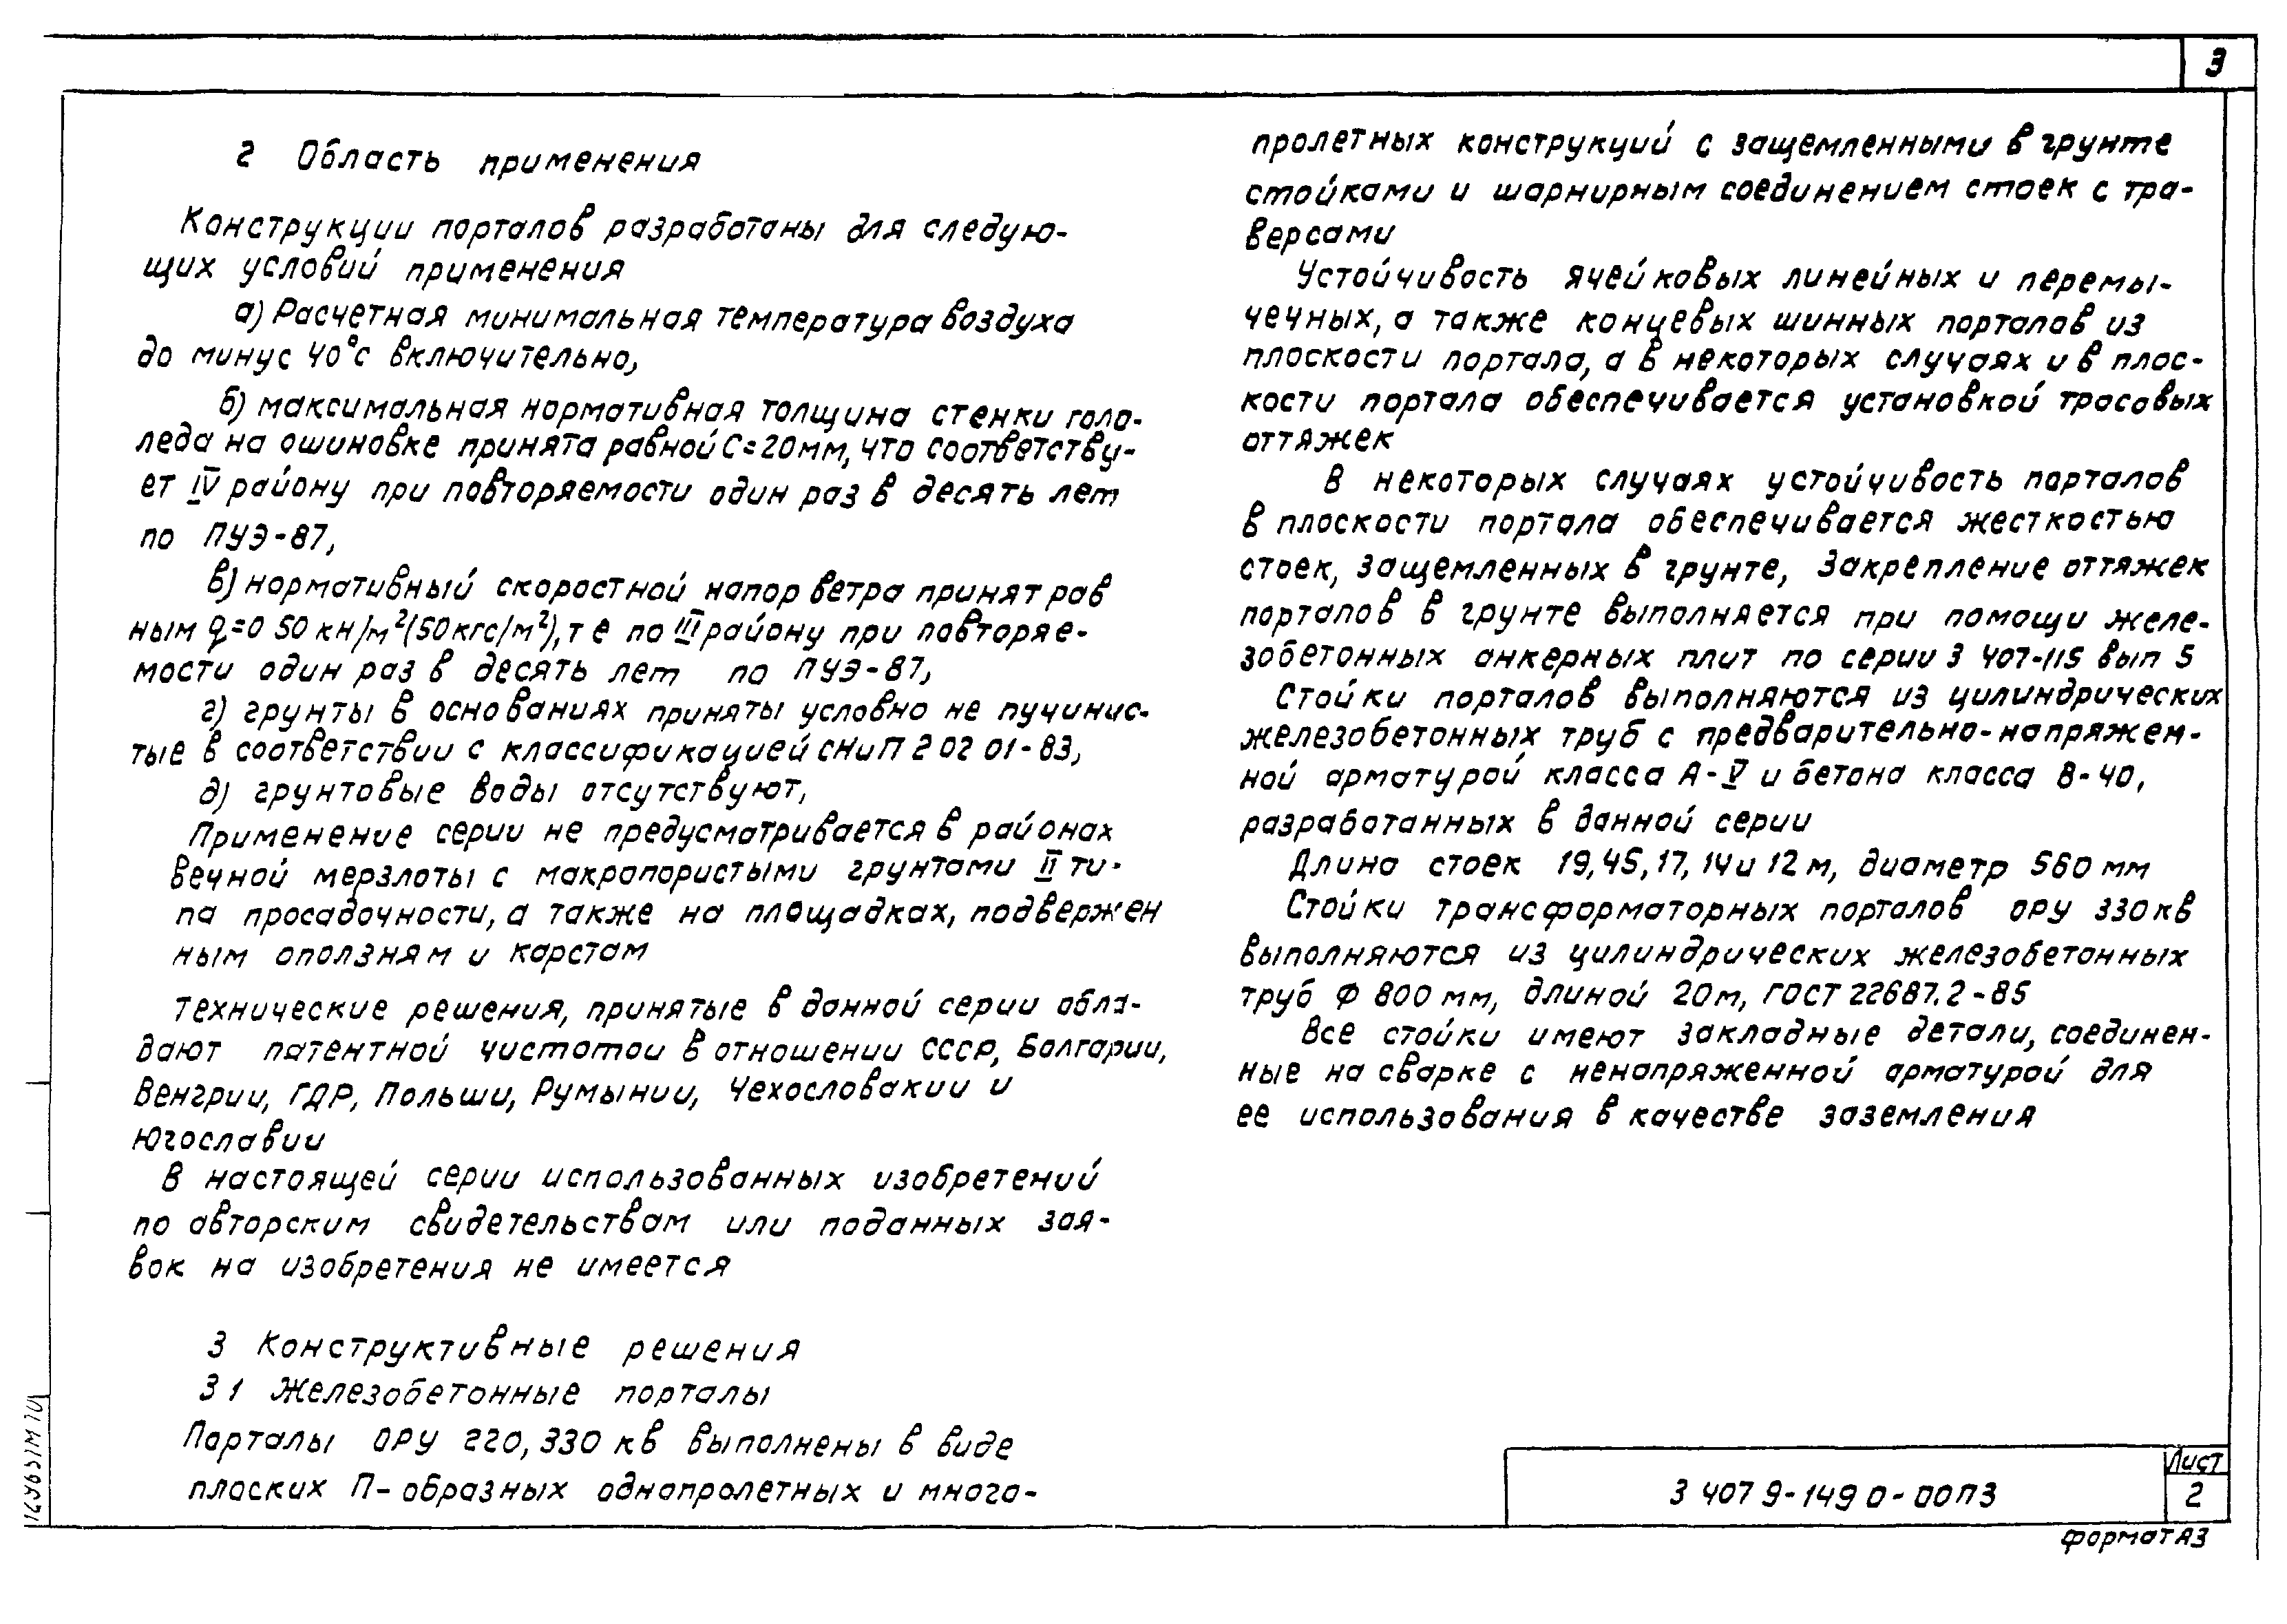 3
2 Область применения
Конструкции порталов разработаны для следую-
щих условий применения
а) Расчетная минимальная температура воздуха
до минус 40°с включительно,
б) максимальная нормативная толщина стенки голо-
леда на ошиновке принята равной С=20мм, что соответству-
ет IV району при повторяемости один раз в десять лет
по ПУЭ-87,
в) нормативный скоростной напор ветра принят рав
ным q=0 50 кн/м²(50кгс/м²), т е по III району при повторяе-
мости один раз в десять лет по ПУЭ-87,
г) грунты в основаниях приняты условно не пучинис-
тые в соответствии с классификацией СНиП 2 02 01-83,
д) грунтовые воды отсутствуют,
Применение серии не предусматривается в районах
вечной мерзлоты с макропористыми грунтами II ти-
па просадочности, а также на площадках, подвержен
ным оползням и карстам
Технические решения, принятые в данной серии обла-
дают патентной чистотои в отношении СССР, Болгарии,
Венгрии, ГДР, Польши, Румынии, Чехословакии и
Югославии
В настоящей серии использованных изобретений
по авторским свидетельствам или поданных зая-
вок на изобретения не имеется
3 Конструктивные решения
3 1 Железобетонные порталы
Порталы ОРУ 220, 330 кв выполнены в виде
плоских П-образных однопролетных и много-
пролетных конструкций с защемленными в грунте
стойками и шарнирным соединением стоек с тра-
версами
Устойчивость ячейковых линейных и перемы-
чечных, а также концевых шинных порталов из
плоскости портала, а в некоторых случаях и в плос-
кости портала обеспечивается установкой тросовых
оттяжек
В некоторых случаях устойчивость порталов
в плоскости портала обеспечивается жесткостью
стоек, защемленных в грунте, Закрепление оттяжек
порталов в грунте выполняется при помощи желе-
зобетонных анкерных плит по серии 3 407-115 вып 5
Стойки порталов выполняются из цилиндрических
железобетонных труб с предварительно-напряжен-
ной арматурой класса А-V и бетона класса В-40,
разработанных в данной серии
Длина стоек 19,45, 17, 14 и 12 м, диаметр 560 мм
Стойки трансформаторных порталов ОРУ 330 кв
выполняются из цилиндрических железобетонных
труб Ф 800 мм, длиной 20м, ГОСТ 22687.2-85
Все стойки имеют закладные детали, соединен-
ные на сварке с ненапряженной арматурой для
ее использования в качестве заземления
3 407 9-149 0-00ПЗ
Лист
2
формат А3